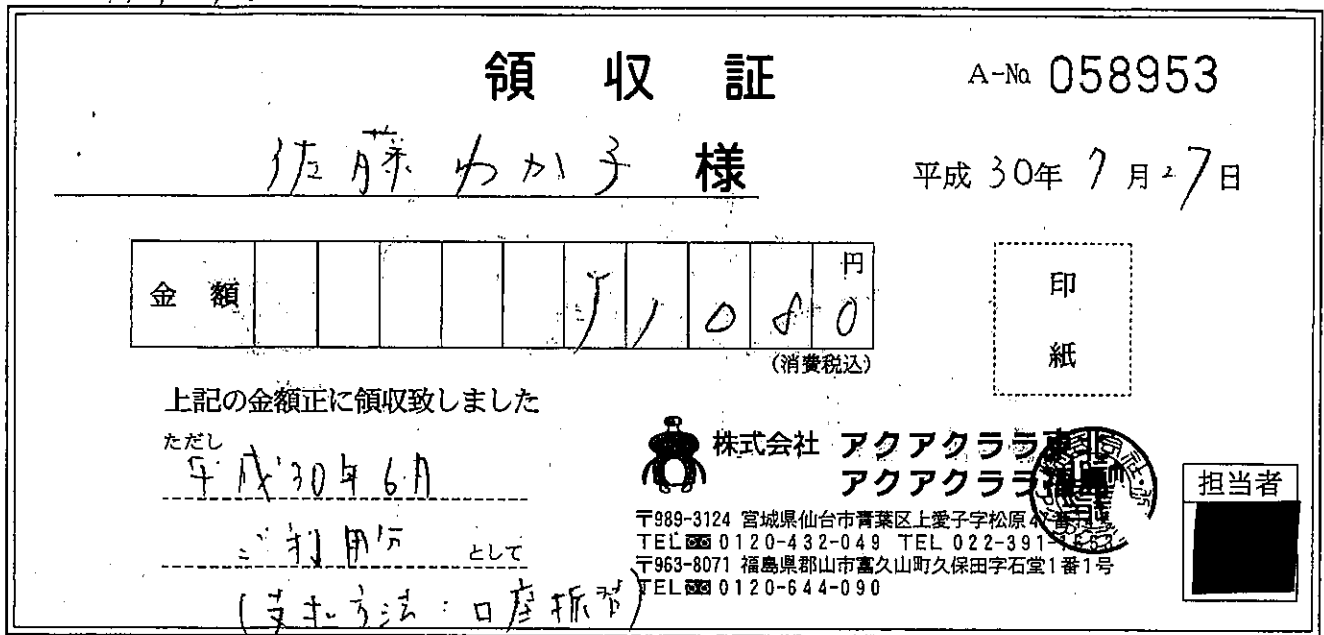 領収証
A-No 058953
佐藤わか子 様
平成 30年 7月 27日
金額 ¥1080円
(消費税込)
印紙
上記の金額正に領収致しました
ただし
平成30年6月
ご利用分 として
(支払方法:口座振替)
株式会社 アクアクララ東北
アクアクララ福島
〒989-3124 宮城県仙台市青葉区上愛子字松原47番
TEL 0120-432-049 TEL 022-391-
〒963-8071 福島県郡山市富久山町久保田字石堂1番1号
TEL 0120-644-090
担当者